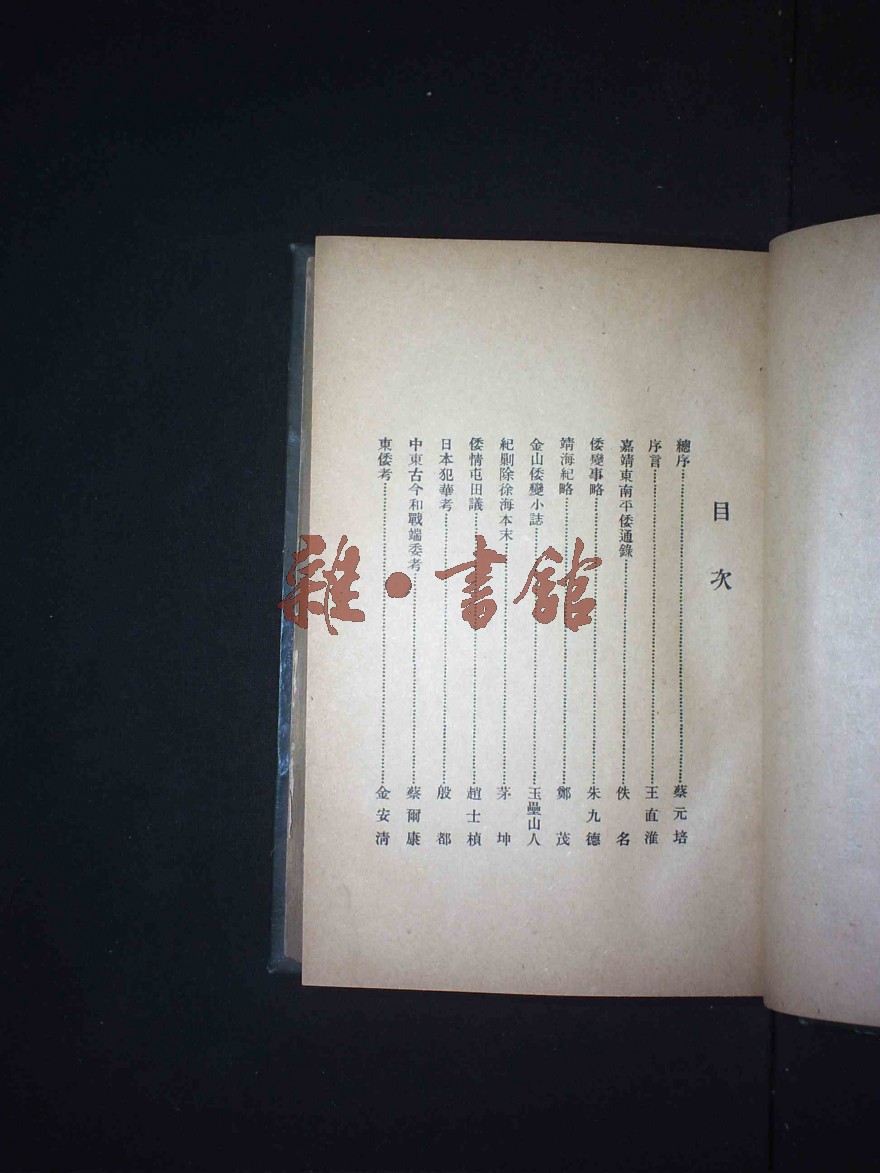 目次
總序 蔡元培
序言 王直淮
嘉靖東南平倭通錄 佚名
倭變事略 朱九德
靖海紀略 鄭茂
金山倭變小誌 玉壘山人
紀剿除徐海本末 茅坤
倭情屯田議 趙士楨
日本犯華考 殷都
中東古今和戰端委考 蔡爾康
東倭考 金安清
雜·書館